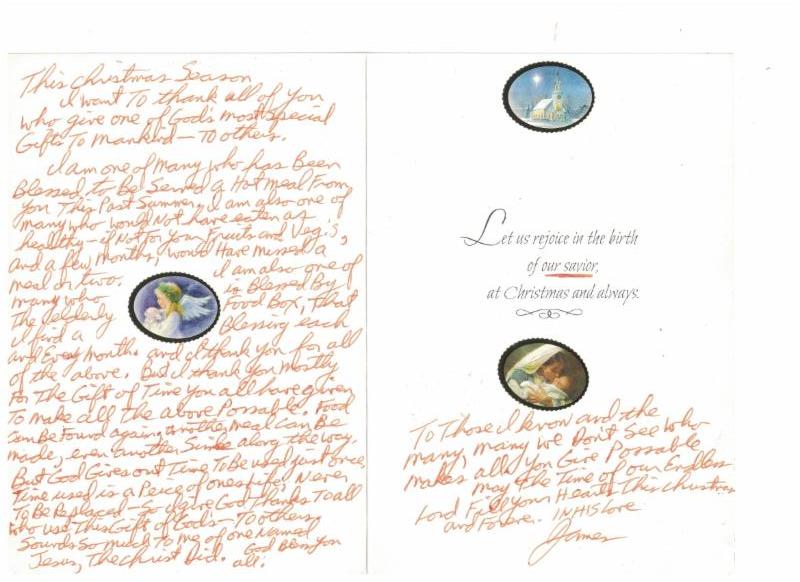 This Christmas Season
I want To thank all of You
who give one of God's most Special
Gifts To Mankind — To others.
I am one of many who has Been
Blessed to Be Served a Hot Meal From
You This Past Summer, I am also one of
many who would Not have eaten as
healthy — if Not for Your Fruits and Veg.'s,
and a few Months, would Have missed a
meal or two. I am also one of
many who is Blessed By
The elderly Food Box, That
I find a Blessing each
and Every Month. and I thank you for all
of the above. But I thank you Mostly
For The Gift of Time You all have given
To make all the above Possable. Food
Can Be Found again, another meal can Be
made, even another Smile along the way.
But God Gives out Time To Be used just once,
Time used is a Peice of ones life! Never
To Be Replaced — So I give God Thanks To all
who use This Gift of Gods — To others,
Sounds So much To me of one Named
Jesus, The Christ Did. God Bless You
all.
Let us rejoice in the birth
of our savior,
at Christmas and always.
To Those I know and the
many, many we Don't See who
makes all You Give Possable
may The Time of our Endless
Lord Fill your Hearts This Christmas
and Forever. IN HIS LOVE
James